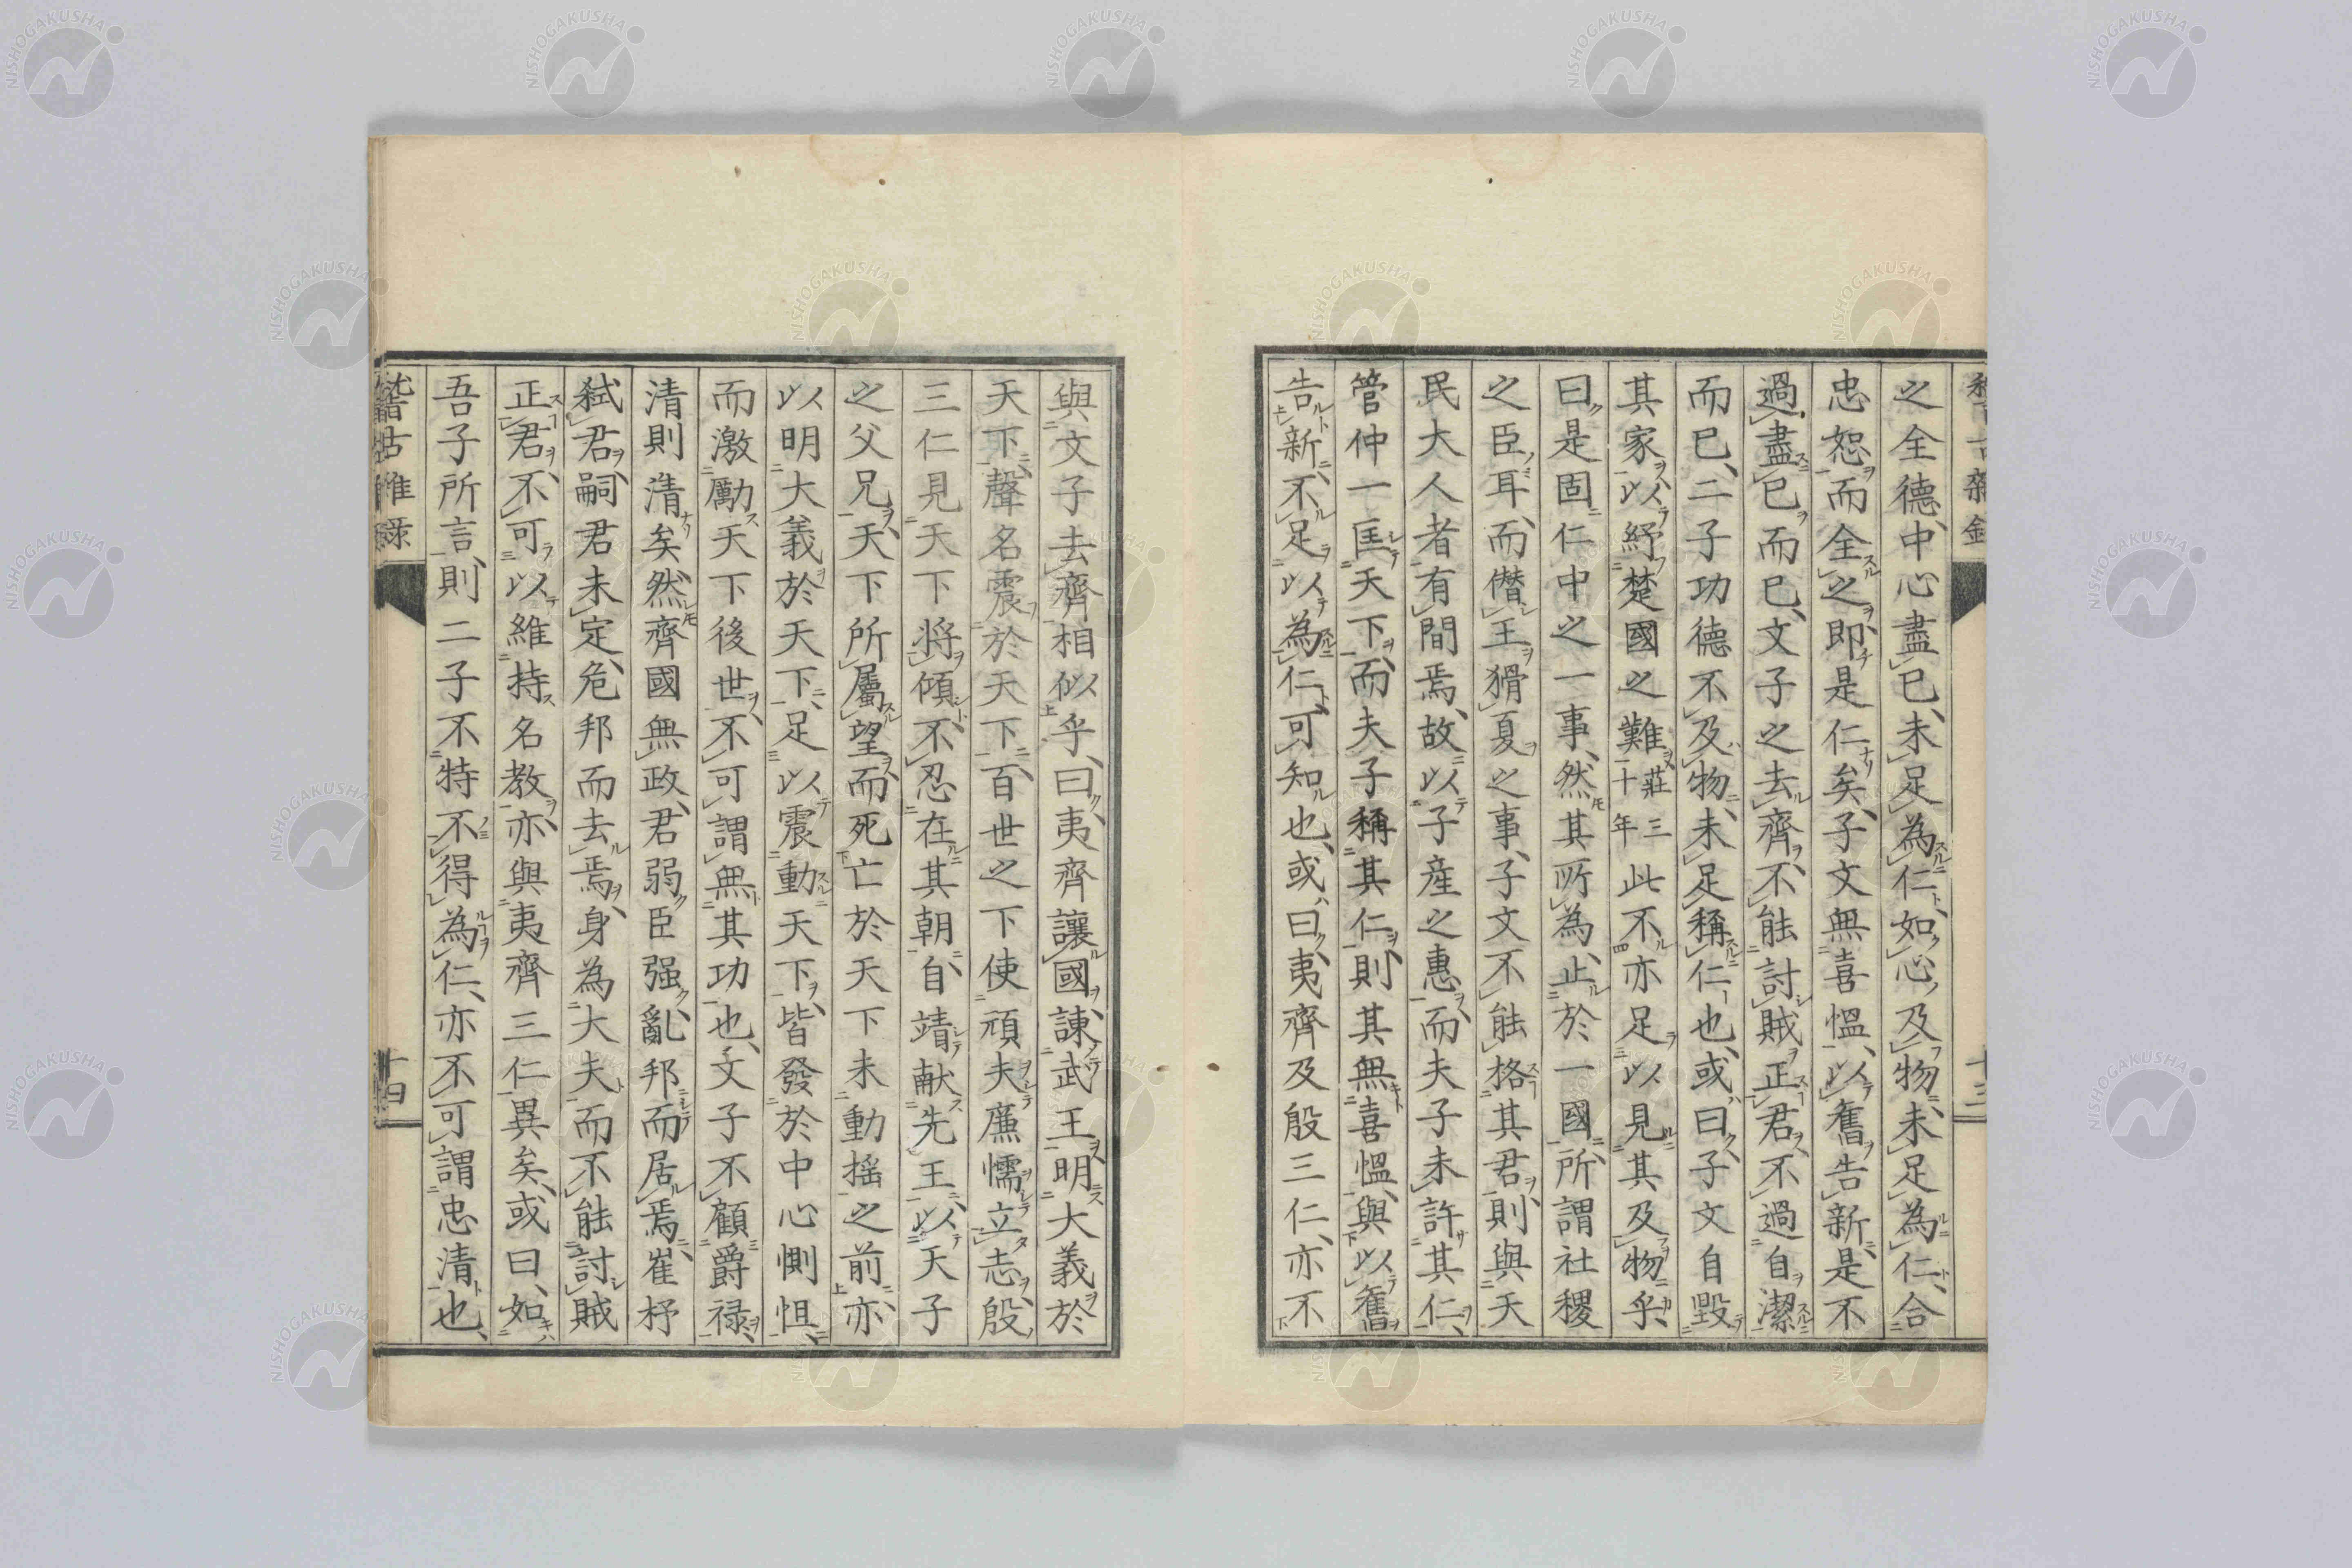 之全德、中心盡已、未足為仁、如心及物、未足為仁、合
忠恕而全之、即是仁矣、子文無喜慍、以舊告新、是不
過盡已而已、文子之去齊、不能討賊正君、不過自潔
而已、二子功德不及物、未足稱仁也、或曰、子文自毀
其家、以紓楚國之難、莊三十年此不亦足以見其及物乎、
曰、是固仁中之一事、然其所為、止於一國、所謂社稷
之臣耳、而僭王猾夏之事、子文不能格其君、則與天
民大人者有間焉、故以子產之惠、而夫子未許其仁、
管仲一匡天下、而夫子稱其仁、則其無喜慍、與以舊
告新、不足以為仁、可知也、或曰、夷齊及殷三仁、亦不
十三
與文子去齊相似乎、曰、夷齊讓國、諫武王、明大義於
天下、聲名震於天下、百世之下使頑夫廉懦立志、殷
三仁見天下將傾、不忍在其朝、自靖献先王、以天子
之父兄、天下所屬望、而死亡於天下未動搖之前、亦
以明大義於天下、足以震動天下、皆發於中心惻怛、
而激勵天下後世、不可謂無其功也、文子不顧爵禄、
清則清矣、然齊國無政、君弱臣强、亂邦而居焉、崔杼
弑君、嗣君未定、危邦而去焉、身為大夫、而不能討賊
正君、不可以維持名教、亦與夷齊三仁異矣、或曰、如
吾子所言、則二子不特不得為仁、亦不可謂忠清也、
稽古雜錄
十四
NISHOGAKUSHA